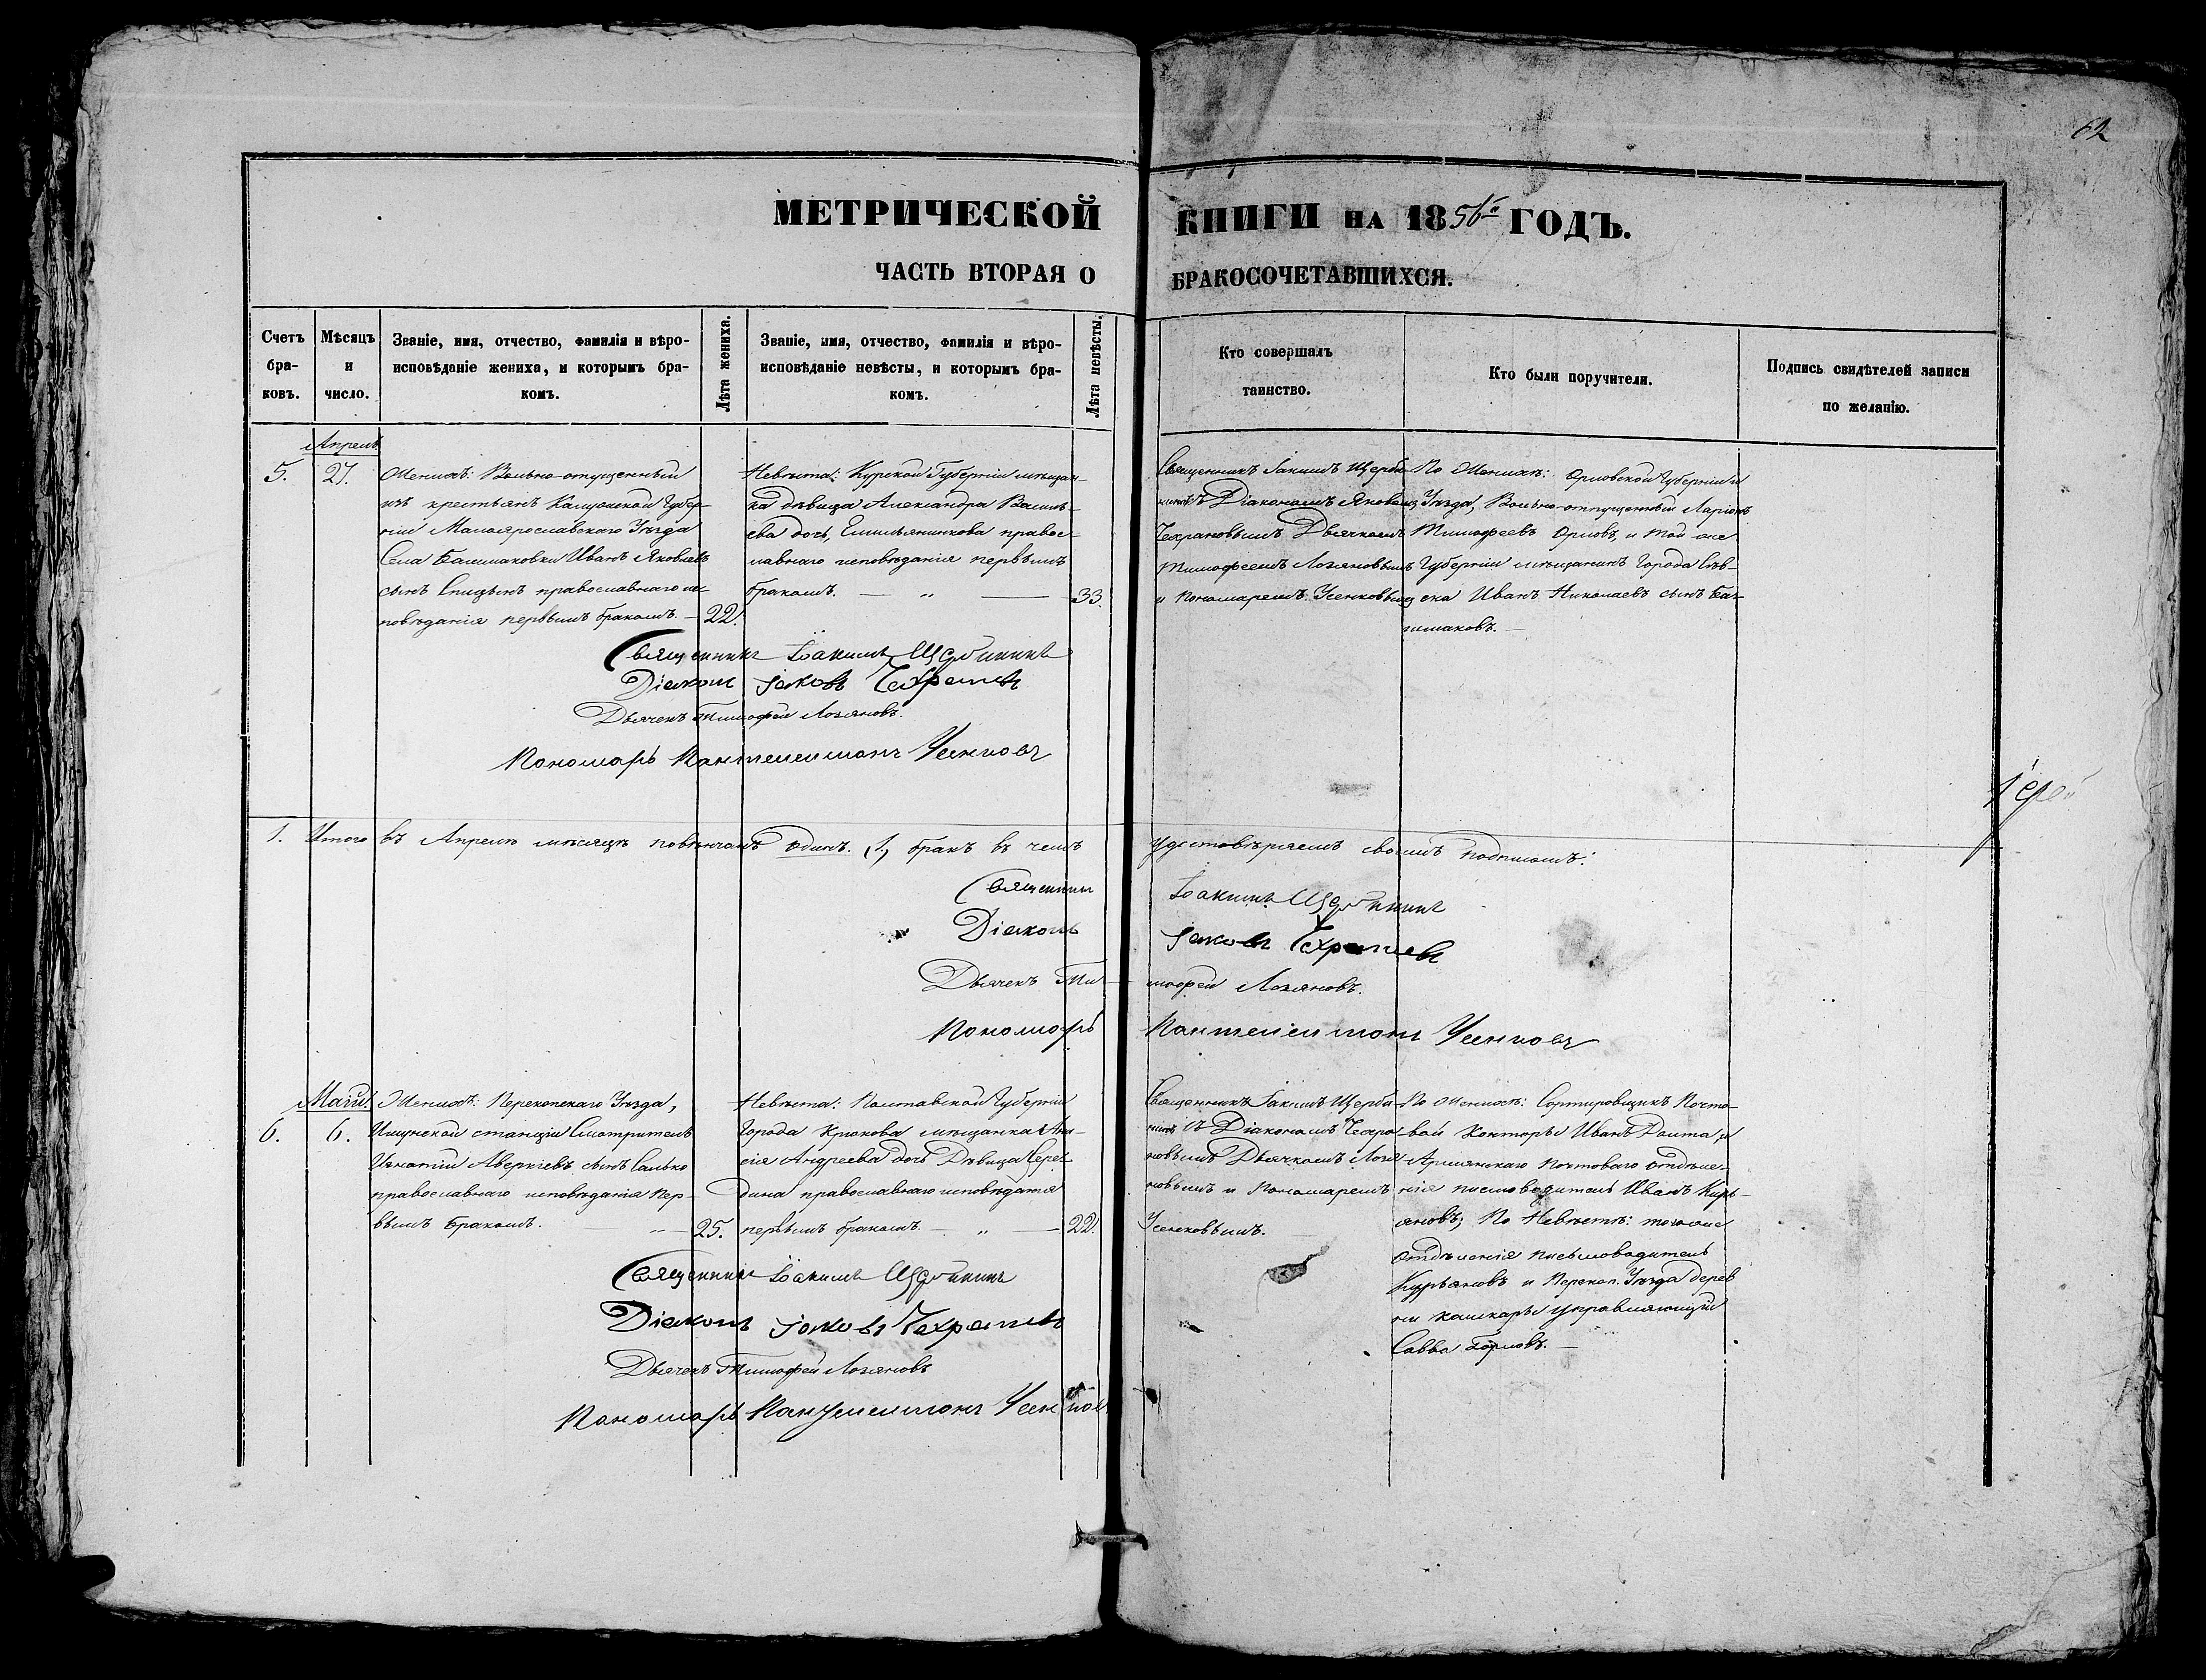 62
МЕТРИЧЕСКОЙ КНИГИ НА 1856й ГОДЪ.
ЧАСТЬ ВТОРАЯ О БРАКОСОЧЕТАВШИХСЯ.
Счетъ браковъ.
Мѣсяцъ и число.
Званіе, имя, отчество, фамилія и вѣро-
исповѣданіе жениха, и которымъ бра-
комъ.
Лѣта жениха.
Званіе, имя, отчество, фамилія и вѣро-
исповѣданіе невѣсты, и которымъ бра-
комъ.
Лѣта невѣсты.
Кто совершалъ
таинство.
Кто были поручители.
Подпись свидѣтелей записи
по желанію.
Апрель
5. 27.
Женихъ: Вольно-отпущенный
изъ крестьянъ Калужской Губер-
ніи Малоярославскаго Уѣзда
Села Башмаковки Иванъ Яковлевъ
сынъ Спицынъ православнаго ис-
повѣданія первымъ бракомъ. —
22.
Невѣста: Курской Губерніи мѣщан-
ка дѣвица Александра Василь-
ева дочь, Емельянинкова правос-
лавнаго исповѣданія первымъ
бракомъ. — „ —
33.
Священникъ Іакимъ Щерби-
нинъ съ Діакономъ Яковомъ
Чехрановымъ Дьячкомъ
Тимофеемъ Лозяновымъ
и Пономаремъ Усенковымъ
По Женихѣ: Орловской Губерніи и
Уѣзда, Вольно-отпущенный Ларіонъ
Тимофеевъ Орловъ, и той же
Губерніи мѣщанинъ Города Сѣв-
ска Иванъ Николаевъ сынъ Баш-
шмаковъ. —
Священникъ Іоакимъ Щербининъ
Діаконъ Іаковъ Чехрановъ
Дьячекъ Тимофей Лозяновъ.
Пономарь Пантелеимонъ Усенковъ
Іерей
1. Итого въ Апрелѣ мѣсяцѣ повѣнчанъ одинъ. (1.) бракъ въ чемъ удостовѣряемъ своимъ подписомъ:
Священникъ Іоакимъ Щербининъ
Діаконъ Іаковъ Чехрановъ
Дьячекъ Тимофей Лозяновъ.
Пономарь Пантелеимонъ Усенковъ
Маій.
6. 6.
Женихъ: Перекопскаго Уѣзда,
Ишунской станціи Смотритель
Игнатій Аверкіевъ сынъ Санько
православнаго исповѣданія пер-
вымъ бракомъ. —
25.
Невѣста: Полтавской Губерніи
Города Крюкова мѣщанка Ана-
сія Андреева дочь Дѣвица Серед-
дина православнаго исповѣданія
первымъ бракомъ. — „ —
22.
Священникъ Іакимъ Щерби-
нинъ съ Діакономъ Чехра-
новымъ Дьячкомъ Лозя-
новымъ и Пономаремъ
Усенковымъ.
По Женихѣ: Сортировщикъ Почто-
вой Конторы Иванъ Долта, и
Армянскаго почтоваго отдѣле-
нія писмоводитель Иванъ Курь-
яновъ; По Невѣстѣ: тогоже
Отдѣленія письмоводитель
Курьяновъ и Перекоп. Уѣзда дерев
ни Кашкары управляющій
Савва Горловъ. —
Священникъ Іоакимъ Щербининъ
Діаконъ Іаковъ Чехрановъ
Дьячекъ Тимофей Лозяновъ
Пономарь Пантелеимонъ Усенковъ